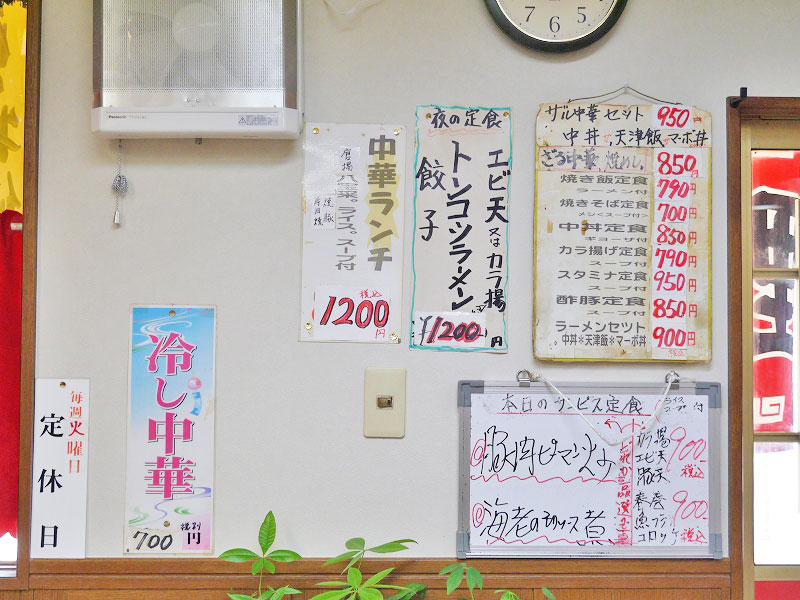 7
6
5
Panasonic
毎週火曜日
定休日
冷し中華
税別
700円
中華ランチ
八宝菜。ライス。スープ付
税込
1200円
夜の定食
エビ天又はカラ揚
トンコツラーメン
餃子
¥1200円
ザル中華セット 950円
中丼 天津飯 マーボ丼
ざる中華、焼めし、 850円
焼き飯定食
ラーメン付
790円
焼きそば定食
メシ<スープ付>
700円
中丼定食
ギョーザ付
850円
カラ揚げ定食
スープ付
790円
スタミナ定食
スープ付
950円
酢豚定食
スープ付
850円
ラーメンセット
中丼*天津飯*マーボ丼。
900円
税込
本日のサービス定食
ライス
スープ 付
豚肉ピーマン炒め
エビ天
900
税込
どれか一品選べます
春巻
魚フライ
コロッケ
900
税込